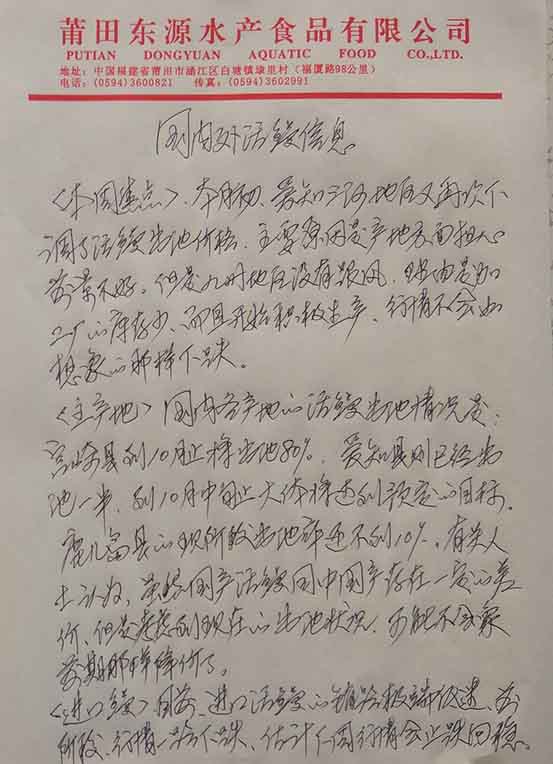 莆田东源水产食品有限公司
PUTIAN DONGYUAN AQUATIC FOOD CO.,LTD.
地址:中国福建省莆田市涵江区白塘镇埭里村(福厦路98公里)
电话:(0594)3600821 传真:(0594)3602991
国内外活鳗信息
<本周焦点>、本月初、爱知三河地区又再次下
调了活鳗出池价格、主要原因是产地方面担心
前景不好。但是九州地区没有跟风、理由是加
工厂的库存少、而且开始积极生产、行情不会如
想象的那样下跌。
<主产地> 国内各产地的活鳗出池情况是:
宫崎县到10月止将出池80%、爱知县则已经出
池一半、到10月中旬止大体将达到预定的目标。
鹿儿岛县的现阶段出池率还不到10%。有关人
士认为、虽然国产活鳗同中国产存在一定的差
价、但是考虑到现在的出池状况、可能不会象
前期那样降价了。
<进口鳗> 目前、进口活鳗的销路极端低迷、前
阶段、行情一路下跌、估计下周行情会止跌回稳。